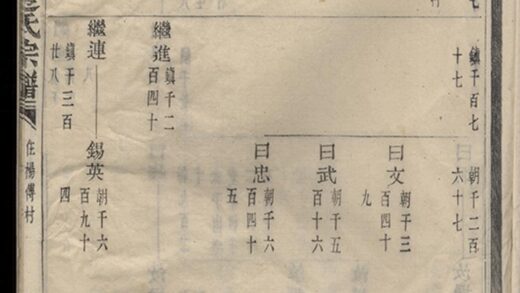 村
鎮千百七
十七
朝千二百
六十七
曰文
朝千三
百四十
九
曰武
朝千五
百十六
曰忠
朝千六
百四十
五
繼進
鎮千二
百四十
繼連
鎮千三百
廿八
錫英
朝千六
百九十
四
氏宗譜
在楊傅村